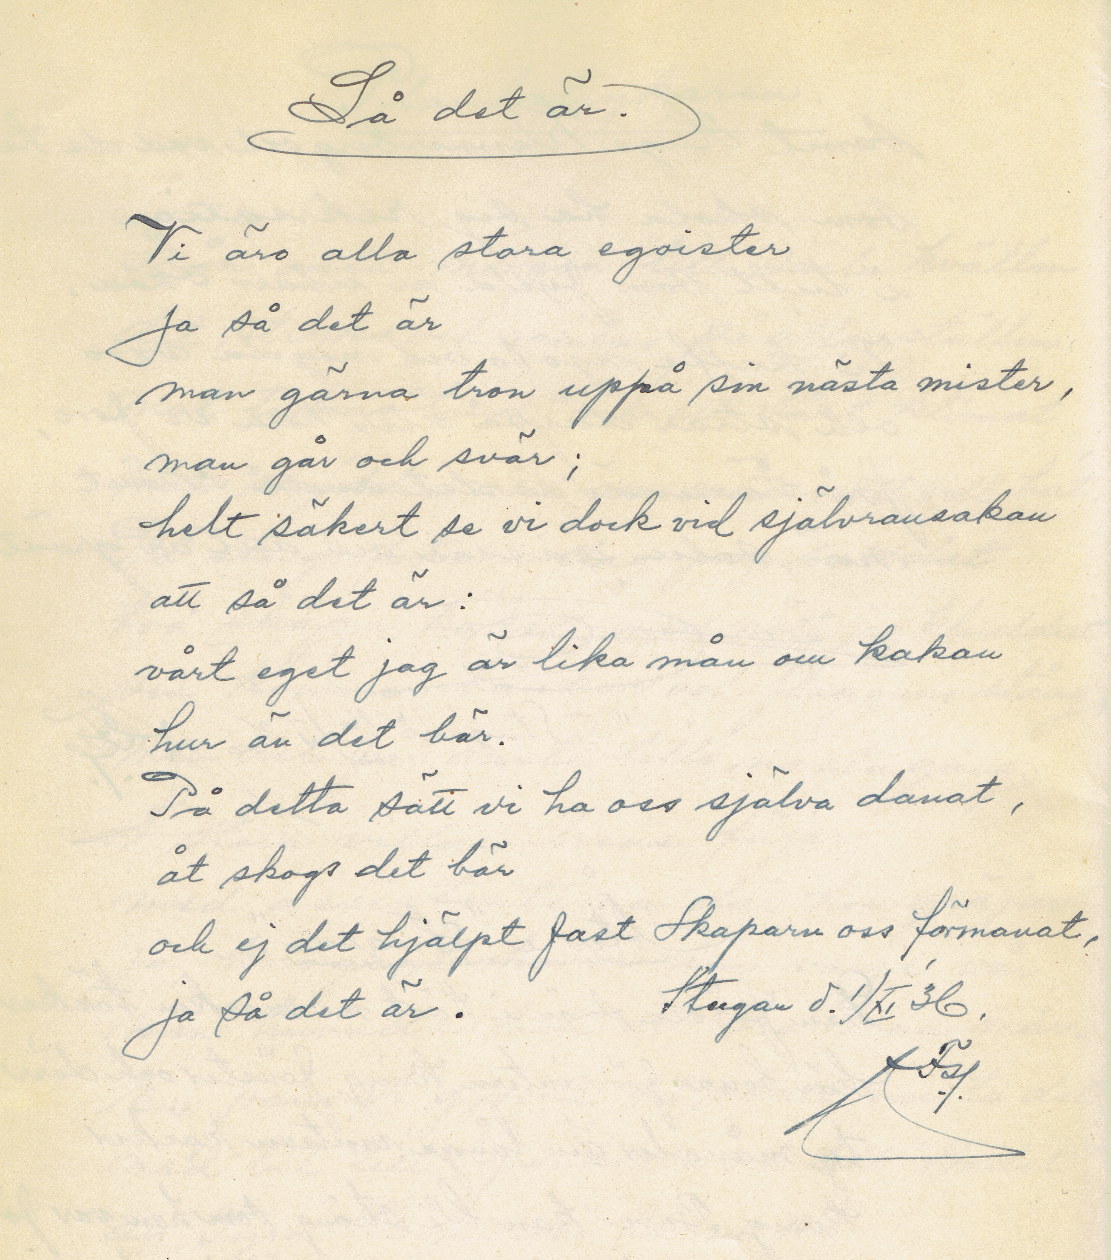 Så det är.
Vi äro alla stora egoister
ja så det är
man gärna tron uppå sin nästa mister,
man går och svär;
helt säkert se vi dock vid självransakan
att så det är:
vårt eget jag är lika mån om kakan
hur än det bär.
På detta sätt vi ha oss själva danat,
åt skogs det bär
och ej det hjälpt fast Skaparn oss förmanat,
ja så det är. Stugan d. 1/XI 36.